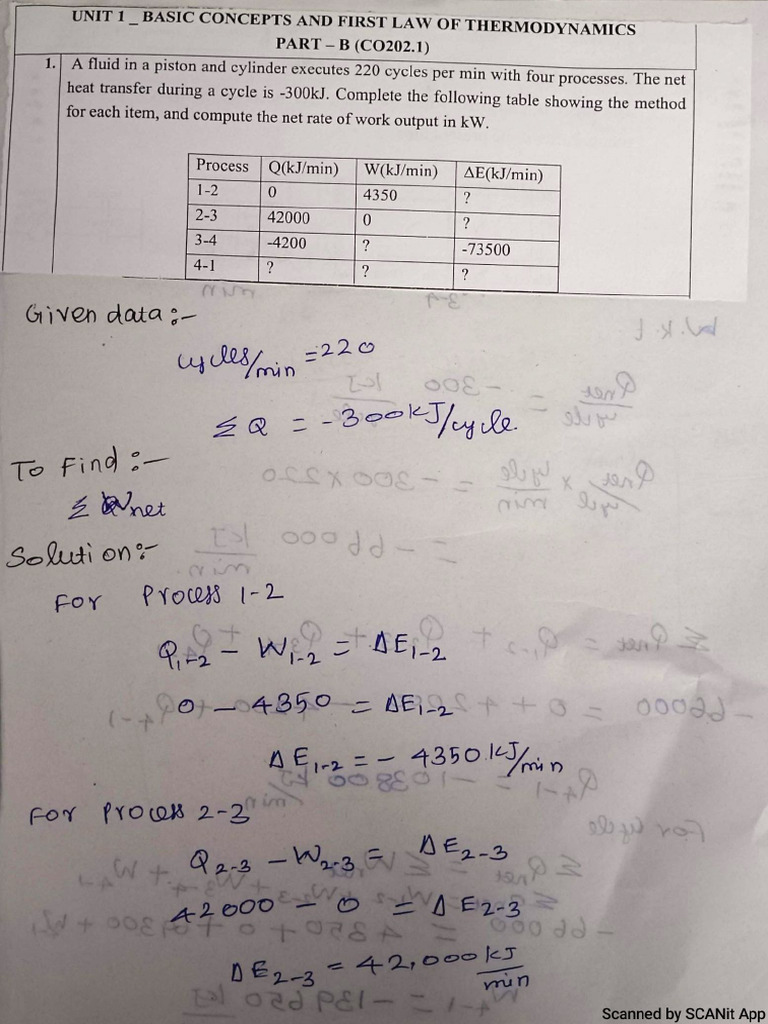 UNIT 1 _ BASIC CONCEPTS AND FIRST LAW OF THERMODYNAMICS
PART – B (CO202.1)
1. A fluid in a piston and cylinder executes 220 cycles per min with four processes. The net
heat transfer during a cycle is -300kJ. Complete the following table showing the method
for each item, and compute the net rate of work output in kW.
Process Q(kJ/min) W(kJ/min) ΔE(kJ/min)
1-2 0 4350 ?
2-3 42000 0 ?
3-4 -4200 ? -73500
4-1 ? ? ?
Given data :-
cycles/min = 220
Σ Q = -300kJ/cycle.
To Find :-
Σ Wnet
Solution:-
For Process 1-2
Q1-2 - W1-2 = ΔE1-2
0 - 4350 = ΔE1-2
ΔE1-2 = - 4350 kJ/min
For Process 2-3
Q2-3 - W2-3 = ΔE2-3
42000 - 0 = ΔE2-3
ΔE2-3 = 42,000 kJ/min
Scanned by SCANit App